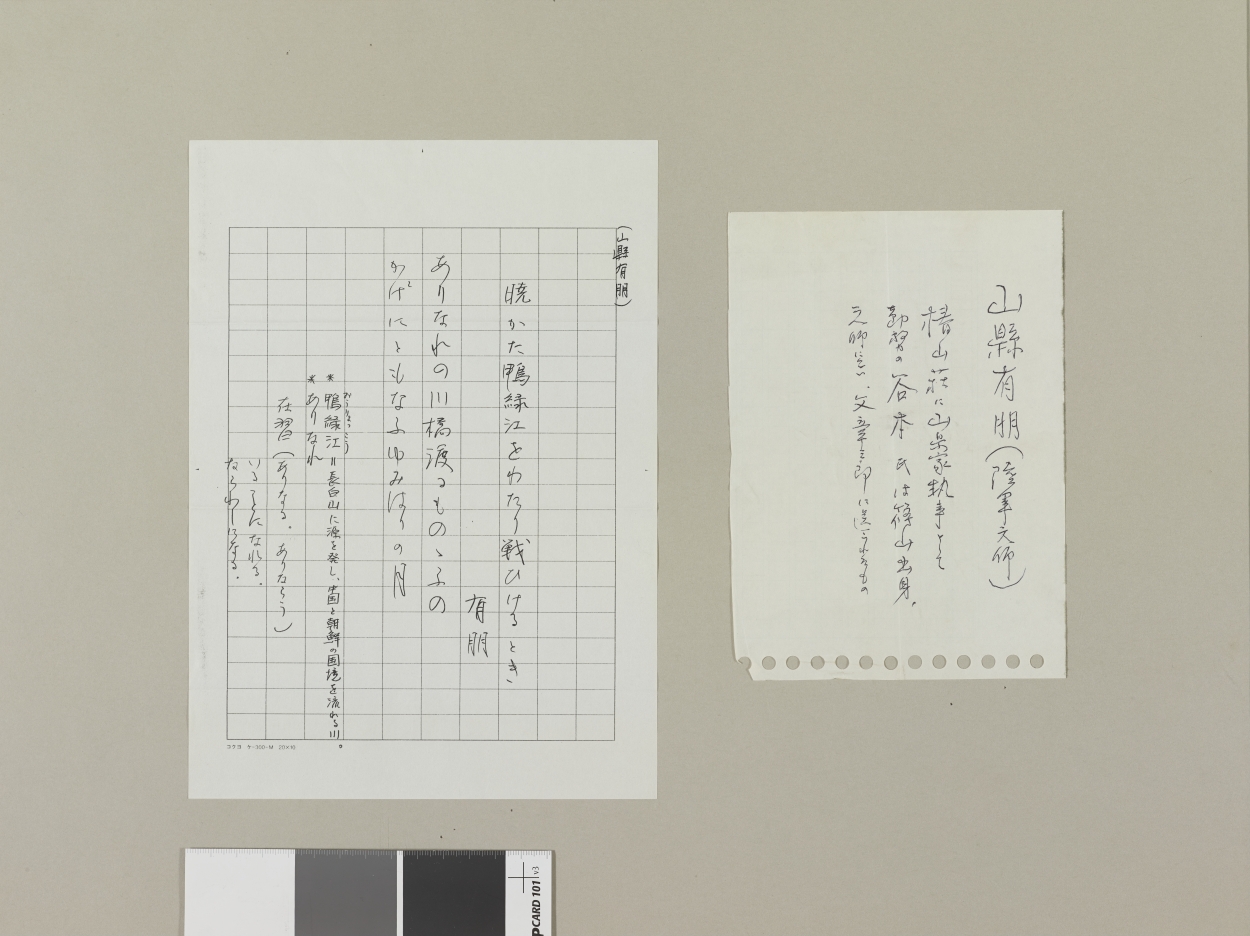 (山縣有朋)
暁かた鴨緑江をわたり戦ひけるとき、
有朋
ありなれの川橋渡るものゝふの
かげにともなふゆみはりの月
おうりょっこう
*鴨緑江=長白山に源を発し、中国と朝鮮の国境を流れる川
*ありなれ
在習(ありなる。ありならう)
いることになれる。
ならわしになる。
コクヨ ケ-30C-M 20×10
山縣有朋(陸軍元師)
椿山荘に山県家執事として
勤務の谷本氏は篠山出身。
元師に 、文章三郎に
CARD 101 v3